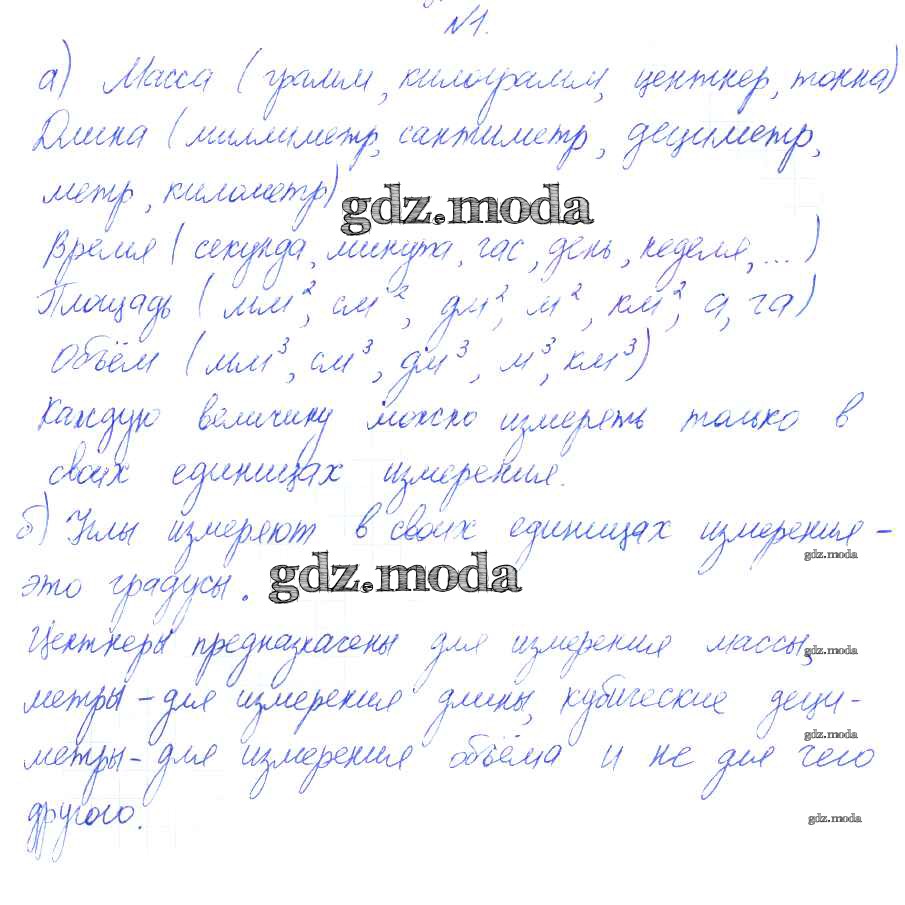 №1.
а) Масса (грамм, килограмм, центнер, тонна)
Длина (миллиметр, сантиметр, дециметр,
метр, километр)
gdz.moda
Время (секунда, минута, час, день, неделя, ...)
Площадь (мм², см², дм², м², км², а, га)
Объём (мм³, см³, дм³, м³, км³)
Каждую величину можно измерять только в
своих единицах измерения.
б) Углы измеряют в своих единицах измерения -
gdz.moda
это градусы.
gdz.moda
Центнеры предназначены для измерения массы,
gdz.moda
метры - для измерения длины, кубические деци-
gdz.moda
метры - для измерения объёма и не для чего
другого.
gdz.moda